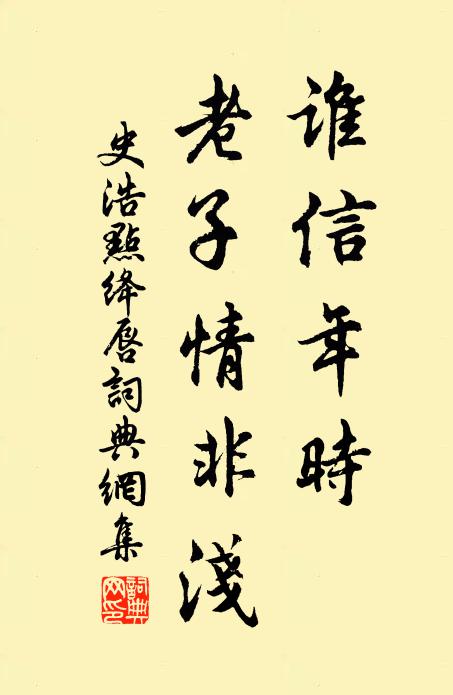 誰信年時
老子情非淺
史浩點絳唇詞典網集
詞典网印